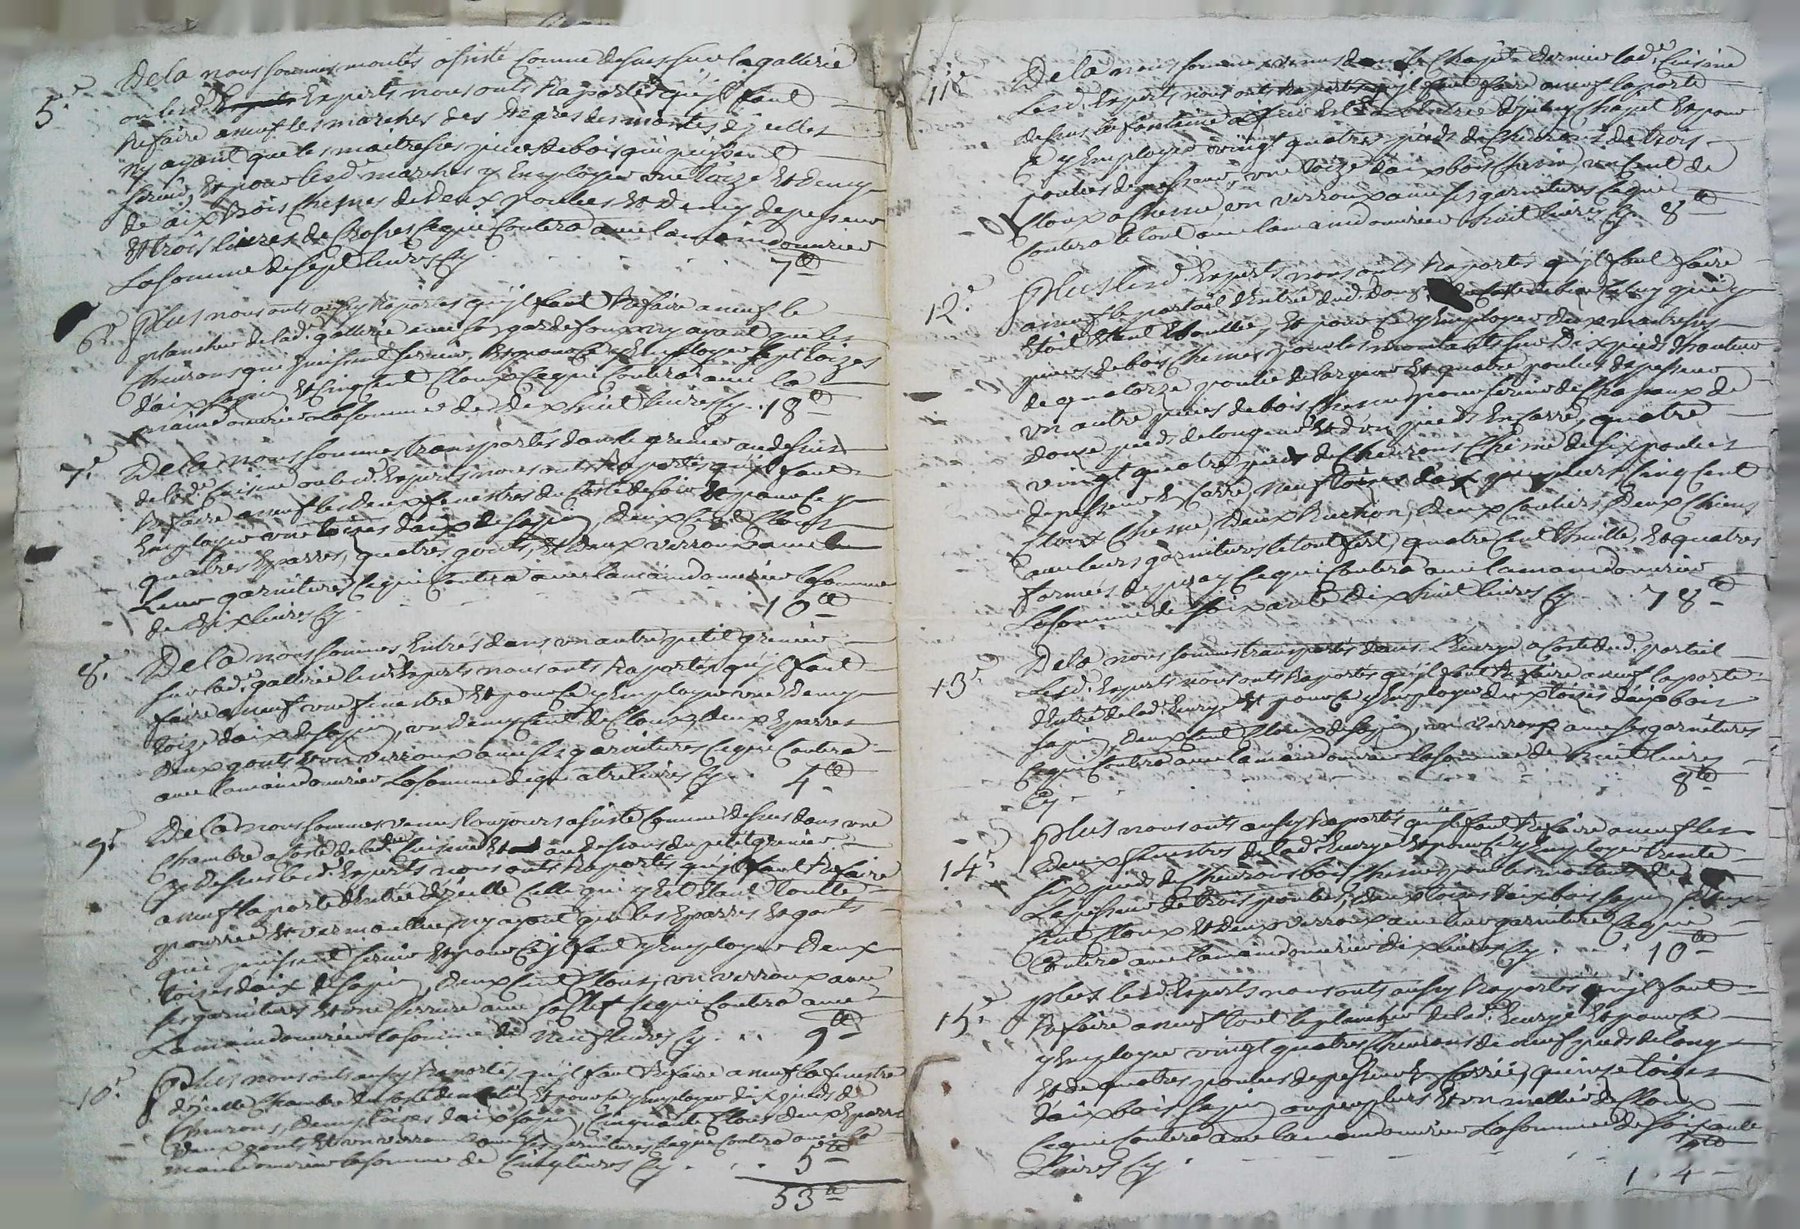 5e De la nous sommes montés assisté comme dessus sur la gallerie
ou lesd. Experts nous onts Raportés qu'jl faut
Refaire aneuf les marches des degres des montés d'jcelles
ny ayant que les maitresses pieces de bois qui puissent
servir, Et pour lesd. marches y Employer une toize Et demy
de aix bois Chesnes de deux pouces Et demy depesseur
Et trois livres de Crosses ce qui Coutera avec la main d'ouvrier
La somme de sept livres Cy . . . . . . 7tt
6e Plus nous onts aussy Raportés qu'jl faut Refaire aneuf le
plancher de lad. gallerie avec ses gardefoux ny ayant que les
Chevrons qui puissent servir, Et pour Ce y Employer sept toizes
d'aix sapin Et Cinq Cent Cloux Ce qui Coutera avec la
main d'ouvrier La somme de dix huit livres Cy . 18tt
7e De la nous sommes transportés dans le grenier au dessus
de lad. Cuisine ou lesd. Experts nous onts Raportés qu'jl faut
Refaire aneuf les deux fenestres du Costé de soir Et pour Ce y
Employer une toizes d'aix de sapin, deux Cent Cloux
quatres Eparres, quatres gonts, Et deux verroux avec
Leur garnitures Ce qui Coutera avec la main d'ouvrier La somme
de dix livres Cy . . . 10tt
8e De la nous sommes Entrés dans un autre petit grenier
sur lad. gallerie lesd. Experts nous onts Raportés qu'jl faut
faire aneuf une fenestre Et pour Ce y Employer une demy
toize d'aix de sapin, un demy Cent de Cloux, deux Eparres
deux gonts Et un verroux avec ses garnitures Ce qui Coutera
avec la main d'ouvrier La somme de quatre livres Cy . 4tt
9e De la nous sommes venus toujours assisté Comme dessus dans une
Chambre a Costé de lad. Cuisine Et au dessous du petit grenier
Cy dessus lesd. Experts nous onts Raportés qu'jl faut Refaire
aneuf la porte d'Entrée d'jcelle Celle qui y Est Etant toutte
pourrie Et vermoullue ny ayant que les Eparres Et gonts
qui puissent servir Et pour Ce jl faut y Employer deux
toizes d'aix de sapin, deux Cent Cloux, un verroux avec
ses garnitures Et une serrure avec sa Clef Ce qui Coutera avec
La main d'ouvrier la somme de neuf livres Cy . . . 9tt
10e Plus nous onts aussy Raportés qu'jl faut Refaire aneuf la fenestre
d'jcelle Chambre du Costé de Et pour Ce y Employer dix pieds de
Chevrons, deux toizes d'aix sapin, Cinquante Cloux deux Eparres
deux gonts Et un verroux avec ses garnitures Ce qui Coutera avec la
main d'ouvrier la somme de Cinq livres Cy . . . 5tt
53tt
11e De la nous sommes venus dans le Chapit dernier lad. Cuisine
Lesd. Experts nous onts Raportés qu'jl faut faire aneuf la porte
dessus la fontaine a l'Entrée d'jceluy Chapit Et pour
Ce y Employer vingt quatres pieds de Chevrons de trois
pouces depesseur, une toize d'aix bois Chesne un Cent de
Cloux a Chesne, un verroux avec ses garnitures Ce que
Coutera le tout avec la main d'ouvrier huit livres Cy . 8tt
12e Plus lesd. Experts nous onts Raportés qu'jl faut faire
aneuf le portail d'Entrée dud. celuy qui y
Etoit Etant Et pour Ce y Employer deux maitresses
pieces de bois Chesnes pour les montants sur dix pieds d'hauteur
de quatorze pouces de largeur Et quatre pouces depesseur
un autre pieces de bois Chesne pour servir de Chapeaux de
douse pieds de longueur Et d'un pieds En Carré, quatre
vingt quatre pieds de Chevrons Chesne de six pouces
depesseur En Carré, neuf toizes d'aix Cinq Cent
Cloux Chesne, deux , deux , deux
avec leurs garnitures le tout fert, quatre Cent thuille, Et quatres
Ce qui Coutera avec la main d'ouvrier
La somme de soixante dix huit livres Cy . 78tt
13e De la nous sommes transportés dans l'Eurye a Costé dud. portail
Lesd. Experts nous onts Raportés qu'jl faut Refaire aneuf la porte
d'Entré de lad. Eurye Et pour Ce y Employer dix toizes d'aix bois
sapin, deux Cent Cloux de sapin, un verroux avec ses garnitures
Ce qui Coutera avec la main d'ouvrier La somme de huit livres
Cy . . . . . 8tt
14e Plus nous onts aussy Raportés qu'jl faut Refaire aneuf les
deux fenestres de lad. Eurye Et pour Ce y Employer trente
six pieds de Chevrons bois Chesne pour les montants de
L'apesseur de trois pouces, deux toizes d'aix bois sapin, deux
Cent Cloux Et deux verroux avec leur garniture Ce que
Coutera avec la main d'ouvrier dix livres Cy . . . 10tt
15e Plus lesd. Experts nous onts aussy Raportés qu'jl faut
Refaire aneuf tout le plancher de lad. Eurye Et pour Ce
y Employer vingt quatres Chevrons de neuf pieds de long
Et de quatres pouces depesseur En Carré, quinze toizes
d'aix bois sapin ou Et un millier de Cloux
Ce qui Coutera avec la main d'ouvrier La somme de soixante
Livres Cy